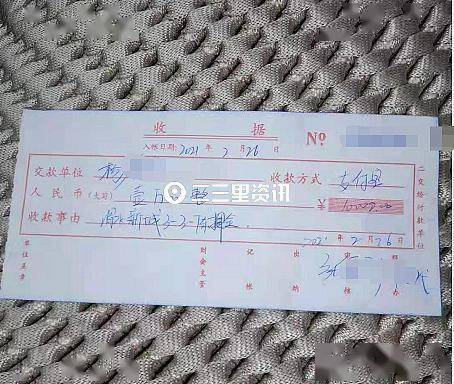 收 据 No
入帐日期: 2021 年 2 月 26 日
交款单位 杨 收款方式 支付宝
人民币(大写) 壹万 整 ¥ 10000.00
三里资讯
收款事由 新城3-3- 押金
2021 年 2 月 26 日
单位盖章 财会主管 记帐 出纳 审核 经办
二交给付款单位